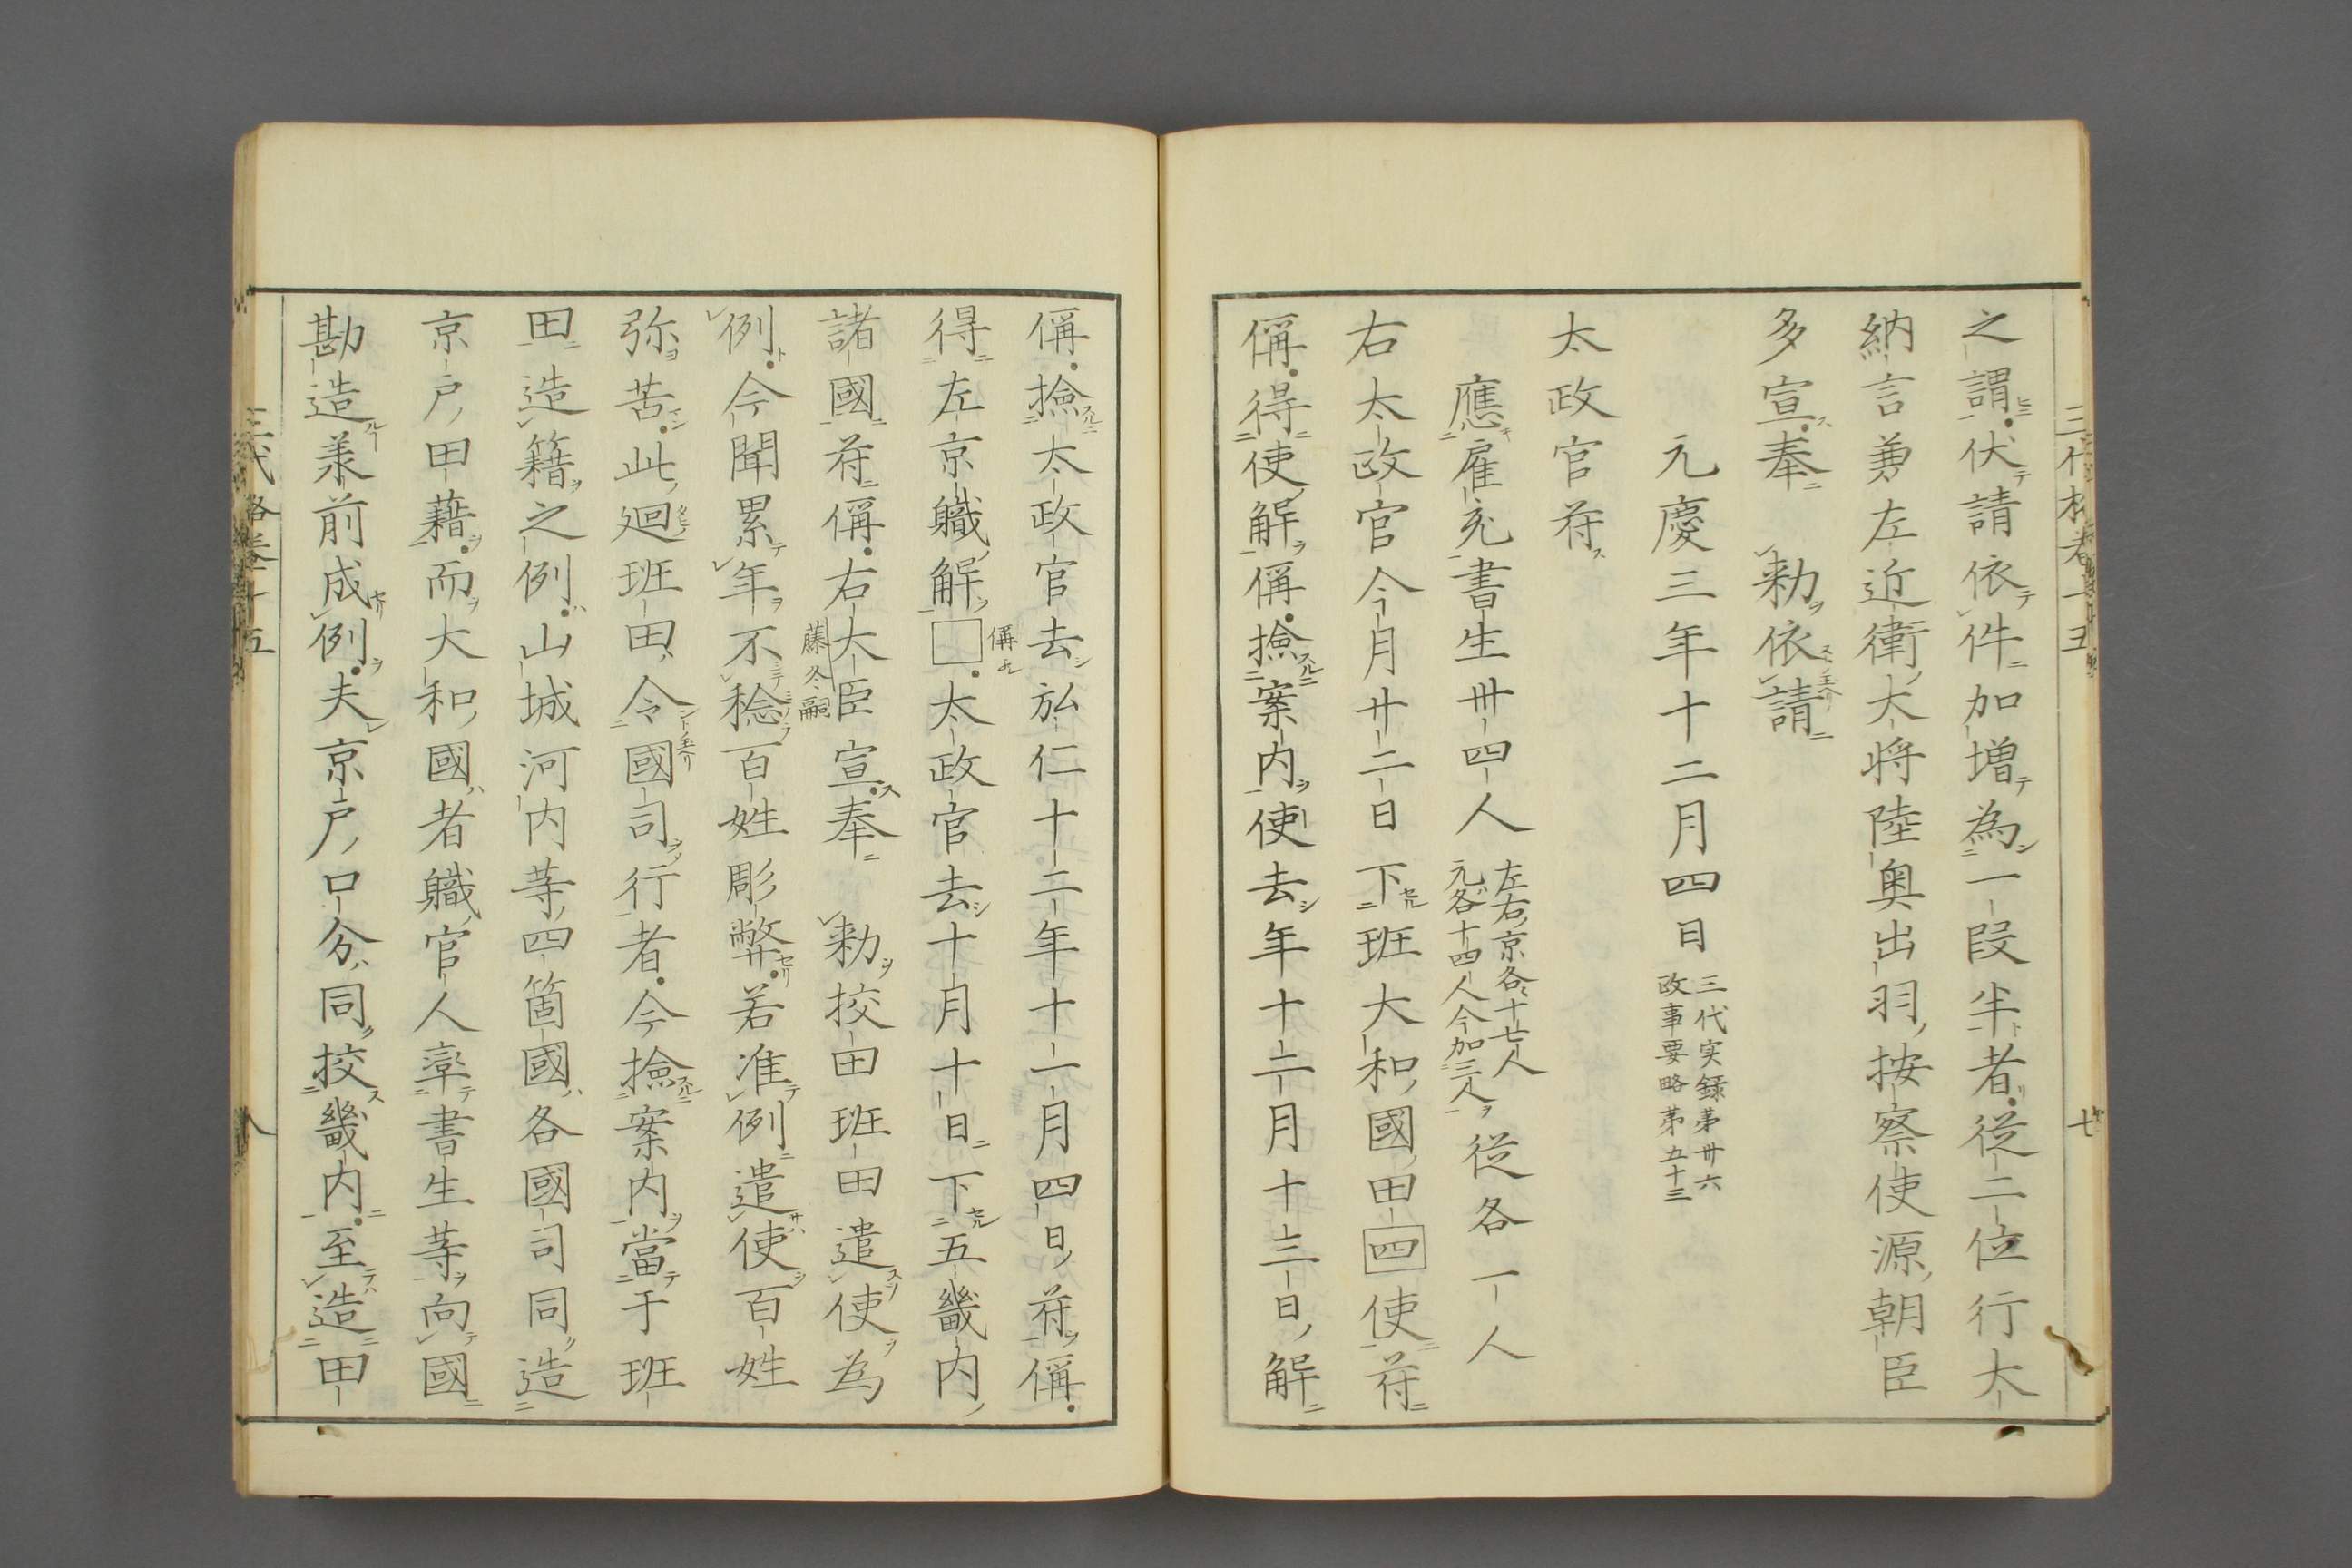 之謂伏請依件加増為一段半者從二位行大
納言兼左近衛大将陸奥出羽按察使源朝臣
多宣奉　勅依請
元慶三年十二月四日
三代実録第卅六
政事要略第五十三
太政官符
應雇充書生卅四人
左右京各十七人
元各十四人今加三人
從各一人
右太政官今月廿二日下班大和國田四使符
偁得使解偁撿案内使去年十二月十三日解
偁撿太政官去弘仁十二年十一月四日符偁
得左京職解□太政官去十月十日下五畿内
偁
諸國符偁右大臣宣奉　勅挍田班田遣使為
藤冬嗣
例今聞累年不稔百姓彫弊若准例遣使百姓
弥苦此廻班田令國司行者今撿案内當于班
田造籍之例山城河内等四箇國各國司同造
京戸田籍而大和國者職官人率書生等向國
勘造兼前成例夫京戸口分同挍畿内至造田